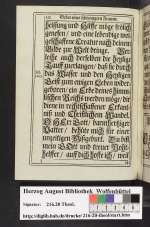 Leistung und Hülffe möge frölich
genesen / und eine lebendige wol-
geschaffene Creatur nach deinem
Bilde zur Welt bringe. Ver-
leihe auch derselben die heylige
Tauff zuerlangen / daß sie durch
das Wasser und den Heyligen
Geist zum ewigen Leben wider-
geboren / ein Erbe deines himm-
lischen Reichs werden mög / dir
diene in rechtschaffener Erkänt-
nuß und Christlichem Wandel.
O HErr Gott / barmhertziger
Vatter / behüte mich für einer
unzeitigen Mißgeburt. Du bist
mein Gott und treuer Noth-
helffer / auff dich hoffe ich /
Herzog August Bibliothek Wolfenbüttel
Signatur: 216.20 Theol.
http://diglib.hab.de/drucke/216-20-theol/start.htm